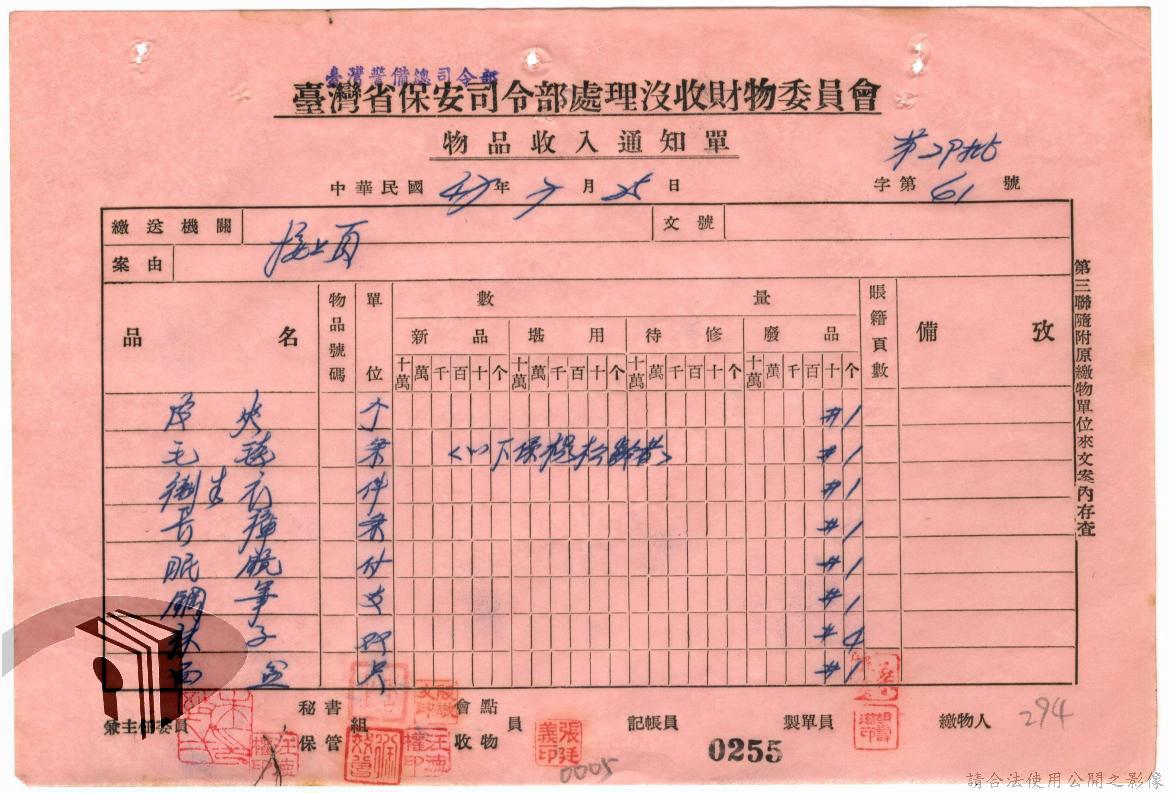 臺灣警備總司令部
臺灣省保安司令部處理沒收財物委員會
物品收入通知單
第
中華民國 年 月 25 日 字第 61 號
繳送機關 接上頁 文號
案由
品名 物品號碼 單位 數量 賬籍頁數 備攷
新品 堪用 待修 廢品
十萬 萬 千 百 十 个 十萬 萬 千 百 十 个 十萬 萬 千 百 十 个 十萬 萬 千 百 十 个
皮夾 个 #1
毛 条 #1
衛生衣 件 #1
長褲 条 #1
眼鏡 付 #1
鋼筆 支 #1
襪子 双 #4
面盆 只 #1
第三聯隨附原繳物單位來文案內存查
兼主任委員 秘書 組 會點 員 記帳員 製單員 繳物人 294
保管 收物
張廷義印
汪德權印
0005
0255
請合法使用公開之影像